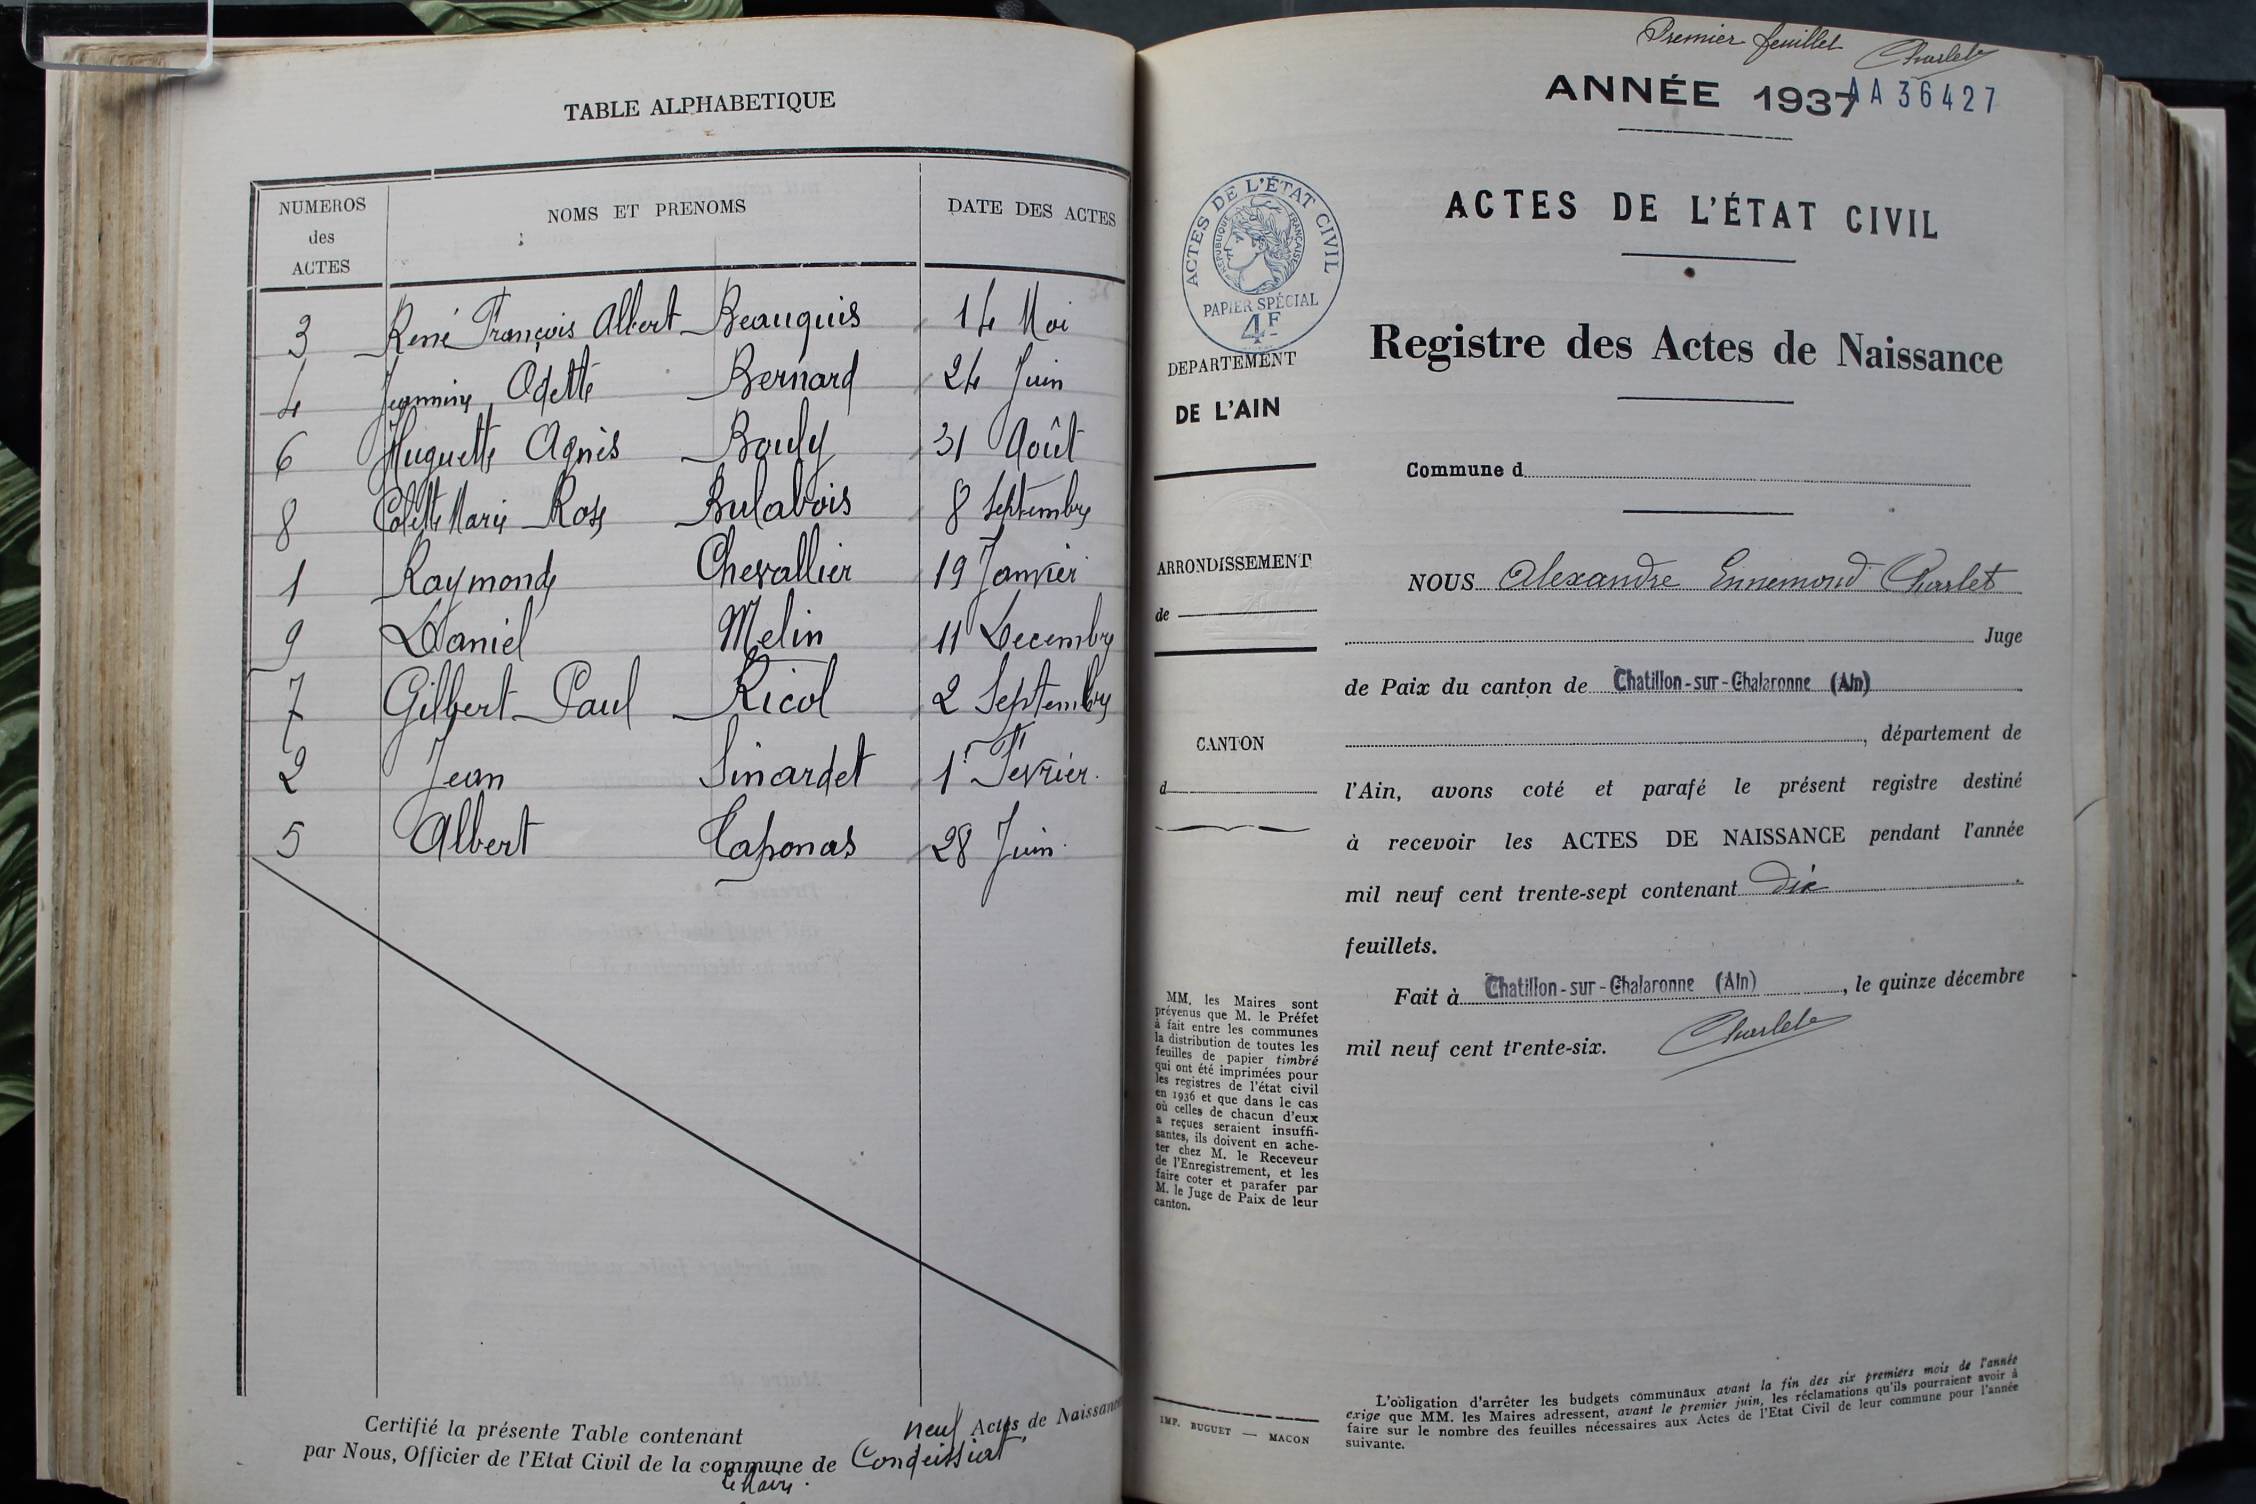 TABLE ALPHABETIQUE
NUMEROS des ACTES NOMS ET PRENOMS DATE DES ACTES
3 René François Albert Beauquis 14 Mai
4 Jeannine Odette Bernard 24 Juin
6 Huguette Agnès Bouly 31 Août
8 Colette Marie Rose Bulabois 8 Septembre
1 Raymonde Chevallier 19 Janvier
9 Daniel Melin 11 Decembre
7 Gilbert Paul Ricol 2 Septembre
2 Jean Sinardet 1r Fevrier.
5 Albert Taponas 28 Juin.
Certifié la présente Table contenant neuf Actes de Naissance
par Nous, Officier de l'Etat Civil de la commune de Condeissiat
le Maire.
Premier feuillet Charlet
ANNÉE 1937
AA 36427
ACTES DE L'ÉTAT CIVIL
RÉPUBLIQUE FRANÇAISE
PAPIER SPÉCIAL
4F
ACTES DE L'ÉTAT CIVIL
Registre des Actes de Naissance
DEPARTEMENT
DE L'AIN
ARRONDISSEMENT
de
CANTON
d
Commune d
NOUS Alexandre Ennemond Charlet
Juge
de Paix du canton de Chatillon-sur-Chalaronne (Ain)
, département de
l'Ain, avons coté et parafé le présent registre destiné
à recevoir les ACTES DE NAISSANCE pendant l'année
mil neuf cent trente-sept contenant dix
feuillets.
Fait à Chatillon-sur-Chalaronne (Ain), le quinze décembre
mil neuf cent trente-six. Charlet
MM. les Maires sont
prévenus que M. le Préfet
à fait entre les communes
la distribution de toutes les
feuilles de papier timbré
qui ont été imprimées pour
les registres de l'état civil
en 1936 et que dans le cas
où celles de chacun d'eux
a reçues seraient insuffi-
santes, ils doivent en ache-
ter chez M. le Receveur
de l'Enregistrement, et les
faire coter et parafer par
M. le Juge de Paix de leur
canton.
IMP. BUGUET — MACON
L'obligation d'arrêter les budgets communaux avant la fin des six premiers mois de l'année
exige que MM. les Maires adressent, avant le premier juin, les réclamations qu'ils pourraient avoir à
faire sur le nombre des feuilles nécessaires aux Actes de l'Etat Civil de leur commune pour l'année
suivante.